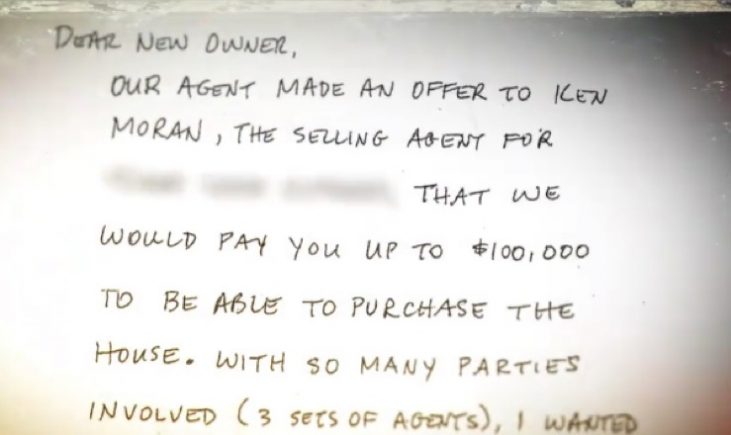 DEAR NEW OWNER,
OUR AGENT MADE AN OFFER TO KEN
MORAN, THE SELLING AGENT FOR
THAT WE
WOULD PAY YOU UP TO $100,000
TO BE ABLE TO PURCHASE THE
HOUSE. WITH SO MANY PARTIES
INVOLVED (3 SETS OF AGENTS), I WANTED